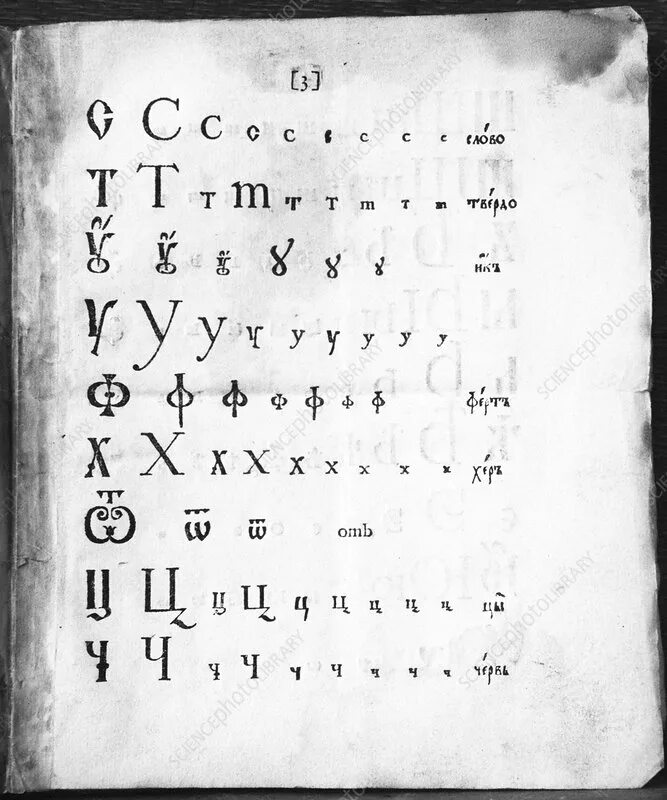 [3]
С С С с с с с с с сло́во
Т Т т m т т m т m тве́рдо
Ѹ Ѹ ѹ Ꙋ ꙋ ꙋ и҆́къ
У У У у у у у у у
Ф Ф Ф ф ф ф ф фе́ртъ
Х Х Х Х х х х х х хе́ръ
Ѿ Ѿ ѿ отЬ
Ц Ц ц Ц ц ц ц ц ц цы̀
Ч Ч ч Ч ч ч ч ч ч че́рвь
SCIENCEphotoLIBRARY